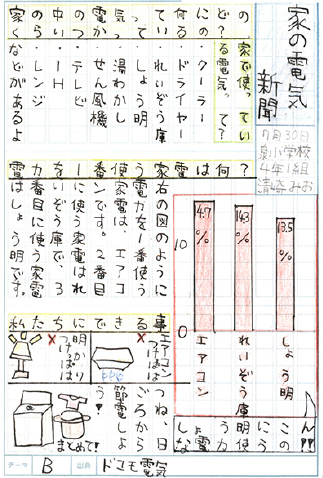 家の電気
新聞
7月30日
泉小学校
4年1組
家の中の電気って何にどの
くらいつかっているの?
家で使ってい
る電気って?
・クーラー
・ドライヤー
・れいぞう庫
・しょう明
・湯わかし
・せん風機
・テレビ
・IH
・レンジ
などがあるよ
電力を1番使う家電は何?
右の図のように
電力を1番使う
家電は、エアコ
ンです。2番目
に使う家電はれ
いぞう庫で、3
番目に使う家電
はしょう明です。
13.5%
14.3%
10
0
しょう明
れいぞう庫
エアコン
私たちにできる事
エアコン
つけっぱなし
明かり
つけっぱなし
まとめて!
つね、日
ごろから
節電しよ
う!
テーマ
B
出典
ドコモ電気